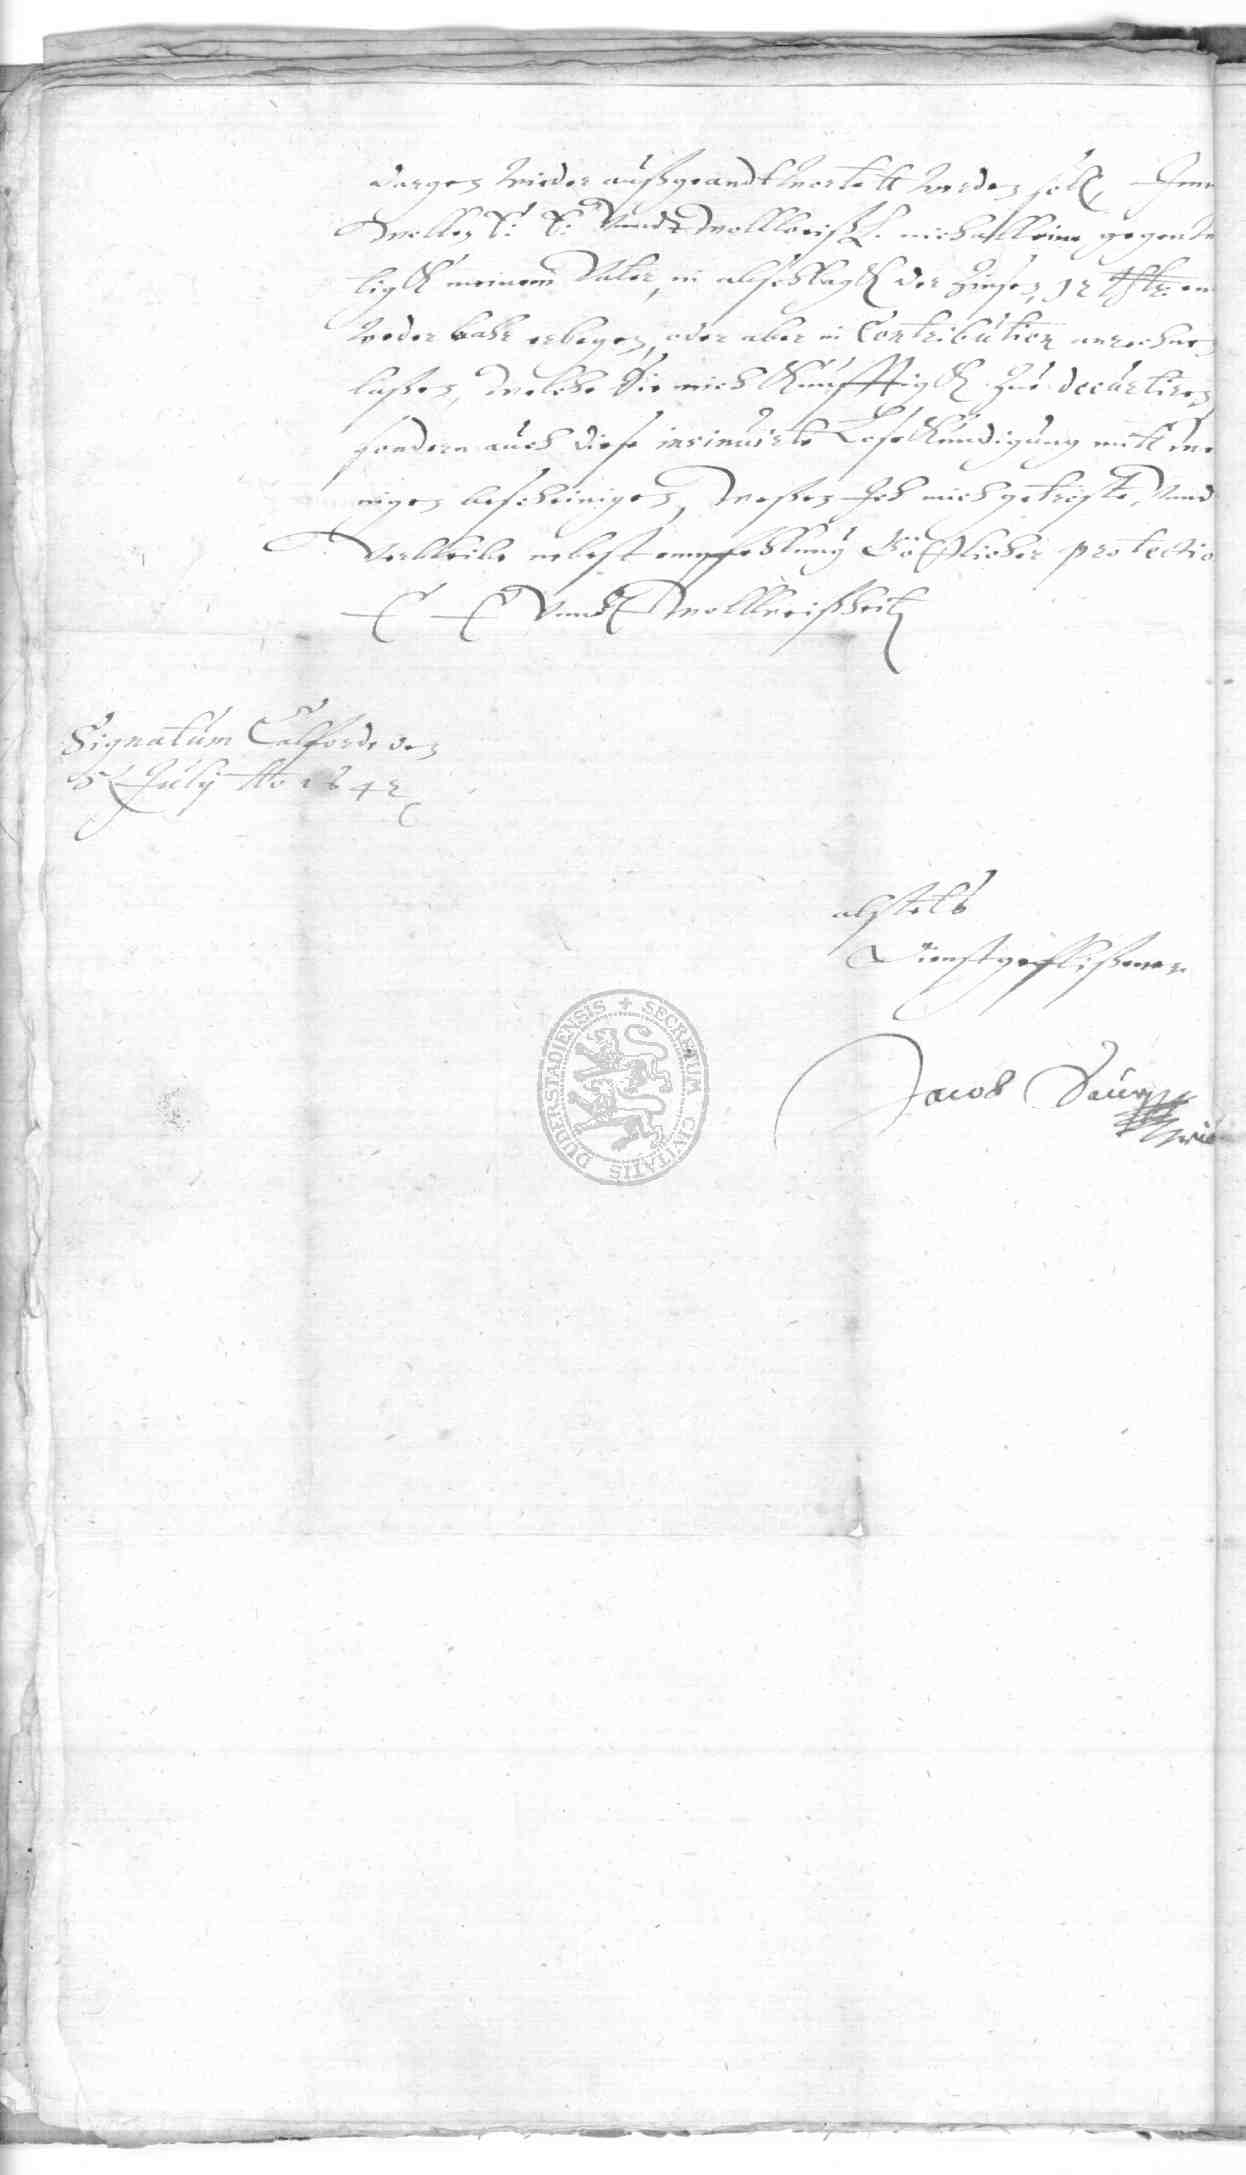 dargegen wieder außgeandtwortett werden soll,
Wollen E: E: Vndt Wollweißh. nicht alleine gegenw
tigk meinem Vater, in abschlagk der Zinsen, 12 en
weder bahr erlegen, oder aber in Contribution anrechnen
laßen, welche Sie mich Künfftigk Zue decurtiren,
sondern auch diese insinuirte Loßkündigung mitt we
nigen bescheinigen, deßen Ich mich getröste, Vnd
Verbleibe nebest empfehlung Göttlicher protectio
E E Vndt Wollweißheit
Signatum Calforde den
5 July Ao 1642
alstets
Dienstgeflißener
Jacob
SECRETUM CIVITATIS DUDERSTADIENSIS